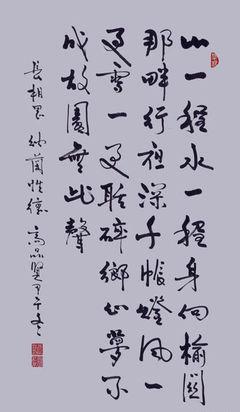 山一程水一程身向榆關
那畔行夜深千帳燈風一
更雪一更聒碎鄉心夢不
成故園無此聲
長相思 納蘭性德 高品賢甲午冬